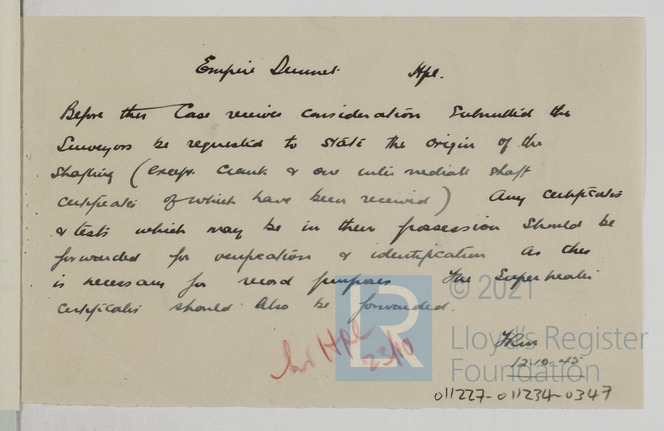 Empire Dunnet. Hpl.
Before this Case receives consideration Submitted the
Surveyors be requested to state the origin of the
Shafting (except Crank & one intermediate shaft
certificates of which have been received) Any certificates
& tests which may be in their possession should be
forwarded for verification & identification as this
is necessary for record purposes The Superheater
certificates should also be forwarded.
12.10.45
Hpl
23/10
© 2021
LR
Lloyd's Register
Foundation
011227-011234-0347